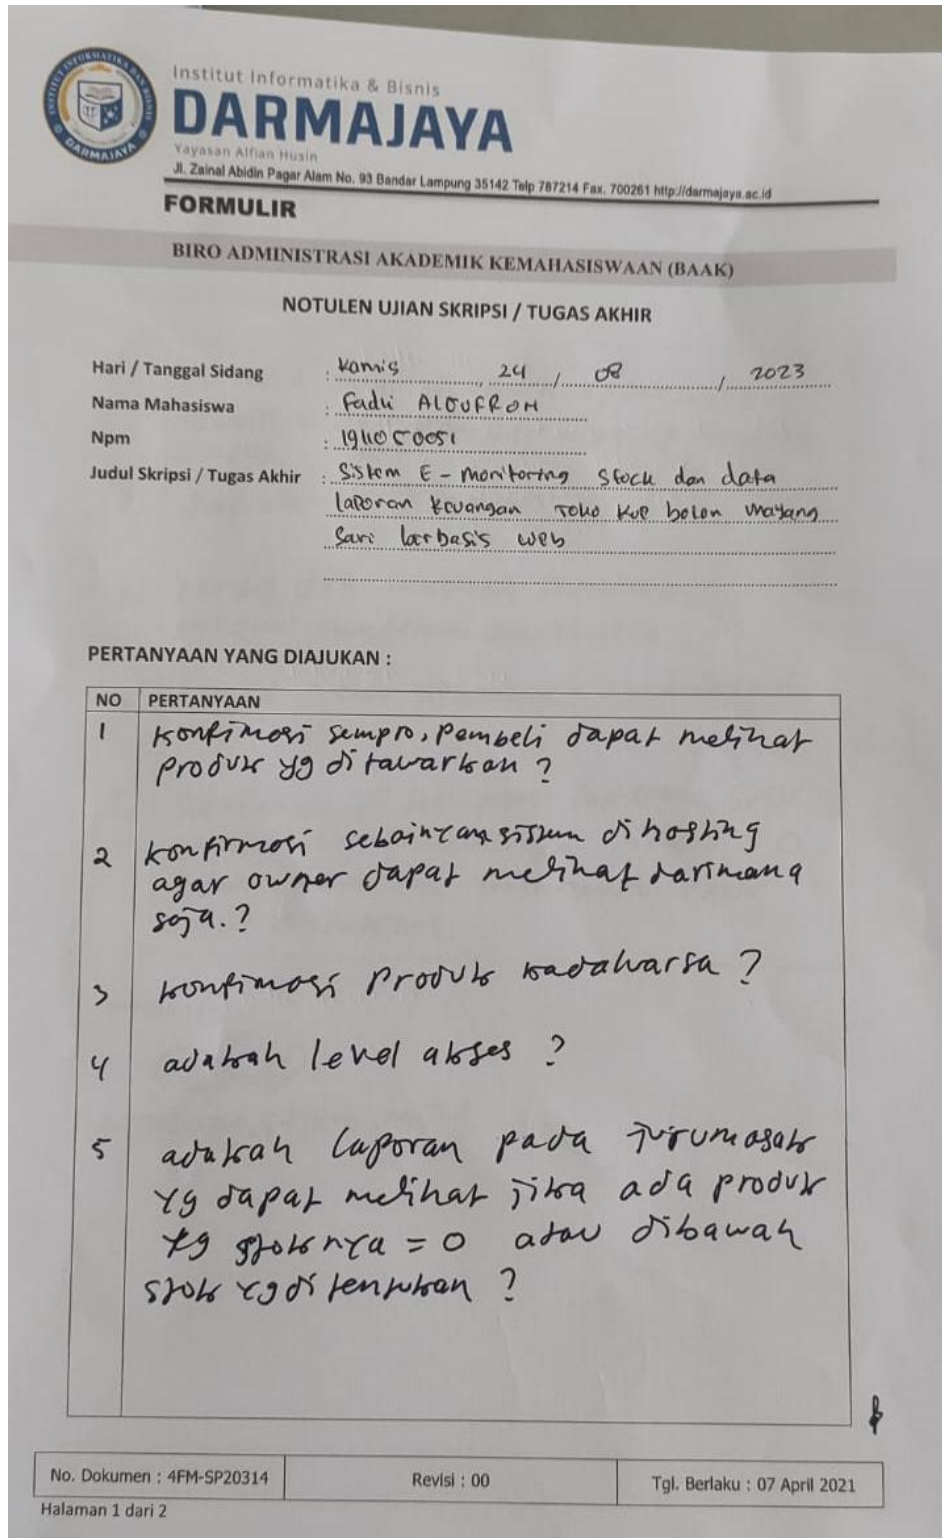 INSTITUT INFORMATIKA DAN BISNIS
DARMAJAYA
Institut Informatika & Bisnis
DARMAJAYA
Yayasan Alfian Husin
Jl. Zainal Abidin Pagar Alam No. 93 Bandar Lampung 35142 Telp 787214 Fax. 700261 http://darmajaya.ac.id
FORMULIR
BIRO ADMINISTRASI AKADEMIK KEMAHASISWAAN (BAAK)
NOTULEN UJIAN SKRIPSI / TUGAS AKHIR
Hari / Tanggal Sidang : Kamis, 24 / 08 / 2023
Nama Mahasiswa : Fadli
Npm :
Judul Skripsi / Tugas Akhir : Sistem E-Monitoring Stock dan data
laporan keuangan Toko kue bolen mayang
Sari berbasis web
PERTANYAAN YANG DIAJUKAN :
NO PERTANYAAN
1 Konfimasi sempro, Pembeli dapat melihat
produk yg ditawarkan ?
2 Konfirmasi sistem dihosting
agar owner dapat melihat darimana
saja. ?
3 Konfimasi produk kadaluarsa ?
4 adakah level akses ?
5 adakah laporan pada
yg dapat melihat jika ada produk
yg stoknya = 0 atau dibawah
stok yg ditentukan ?
No. Dokumen : 4FM-SP20314 Revisi : 00 Tgl. Berlaku : 07 April 2021
Halaman 1 dari 2